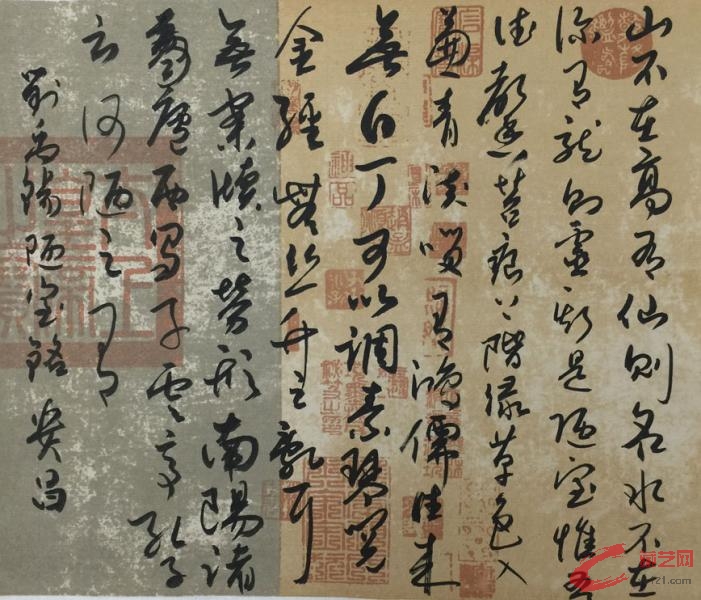 山不在高有仙则名水不在
深有龙则灵斯是陋室惟吾
德馨苔痕上階绿草色入
簾青谈笑有鴻儒往来
無白丁可以调素琴阅
金經無丝竹之亂耳
無案牍之劳形南陽诸
葛廬西蜀子雲亭孔子
云何陋之有
劉禹锡陋室銘 昌
艺网